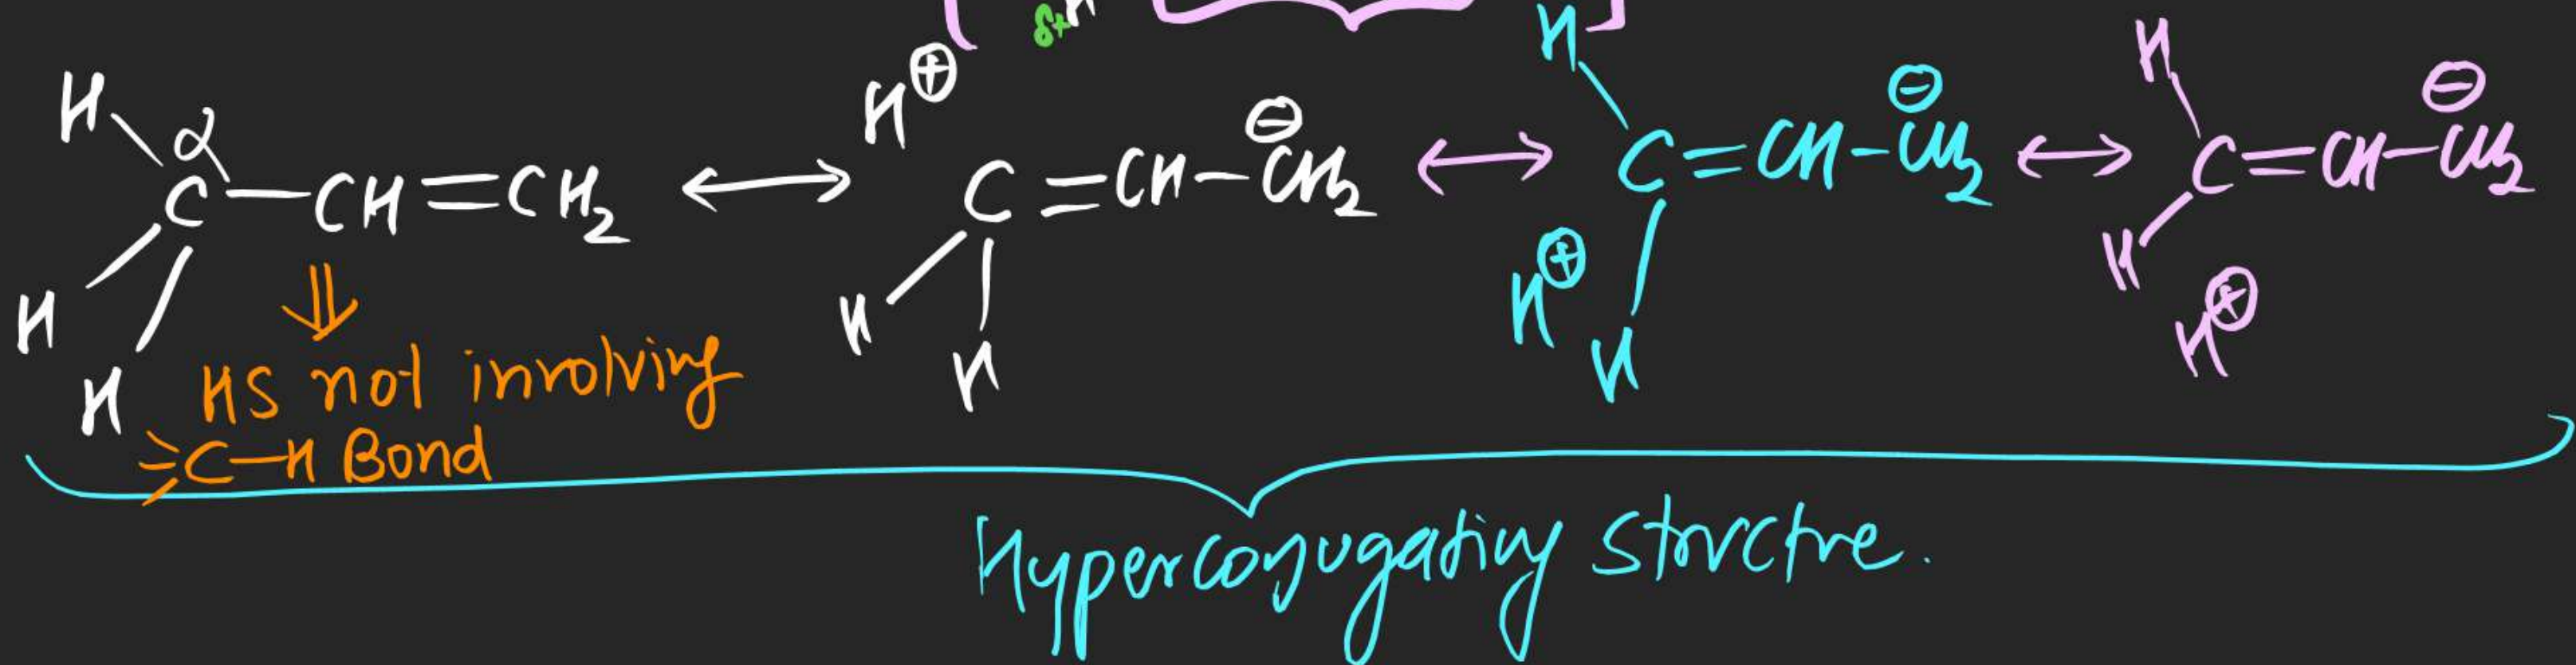 δ+ H
H α C — CH = CH₂ ⟷ H⊕ C = CH — CH₂⊖ ⟷ H C = CH — CH₂⊖ ⟷ H C = CH — CH₂⊖
H H H H H⊕ H H H⊕
⇓
HS not involving
C—H Bond
Hyperconjugating structre.